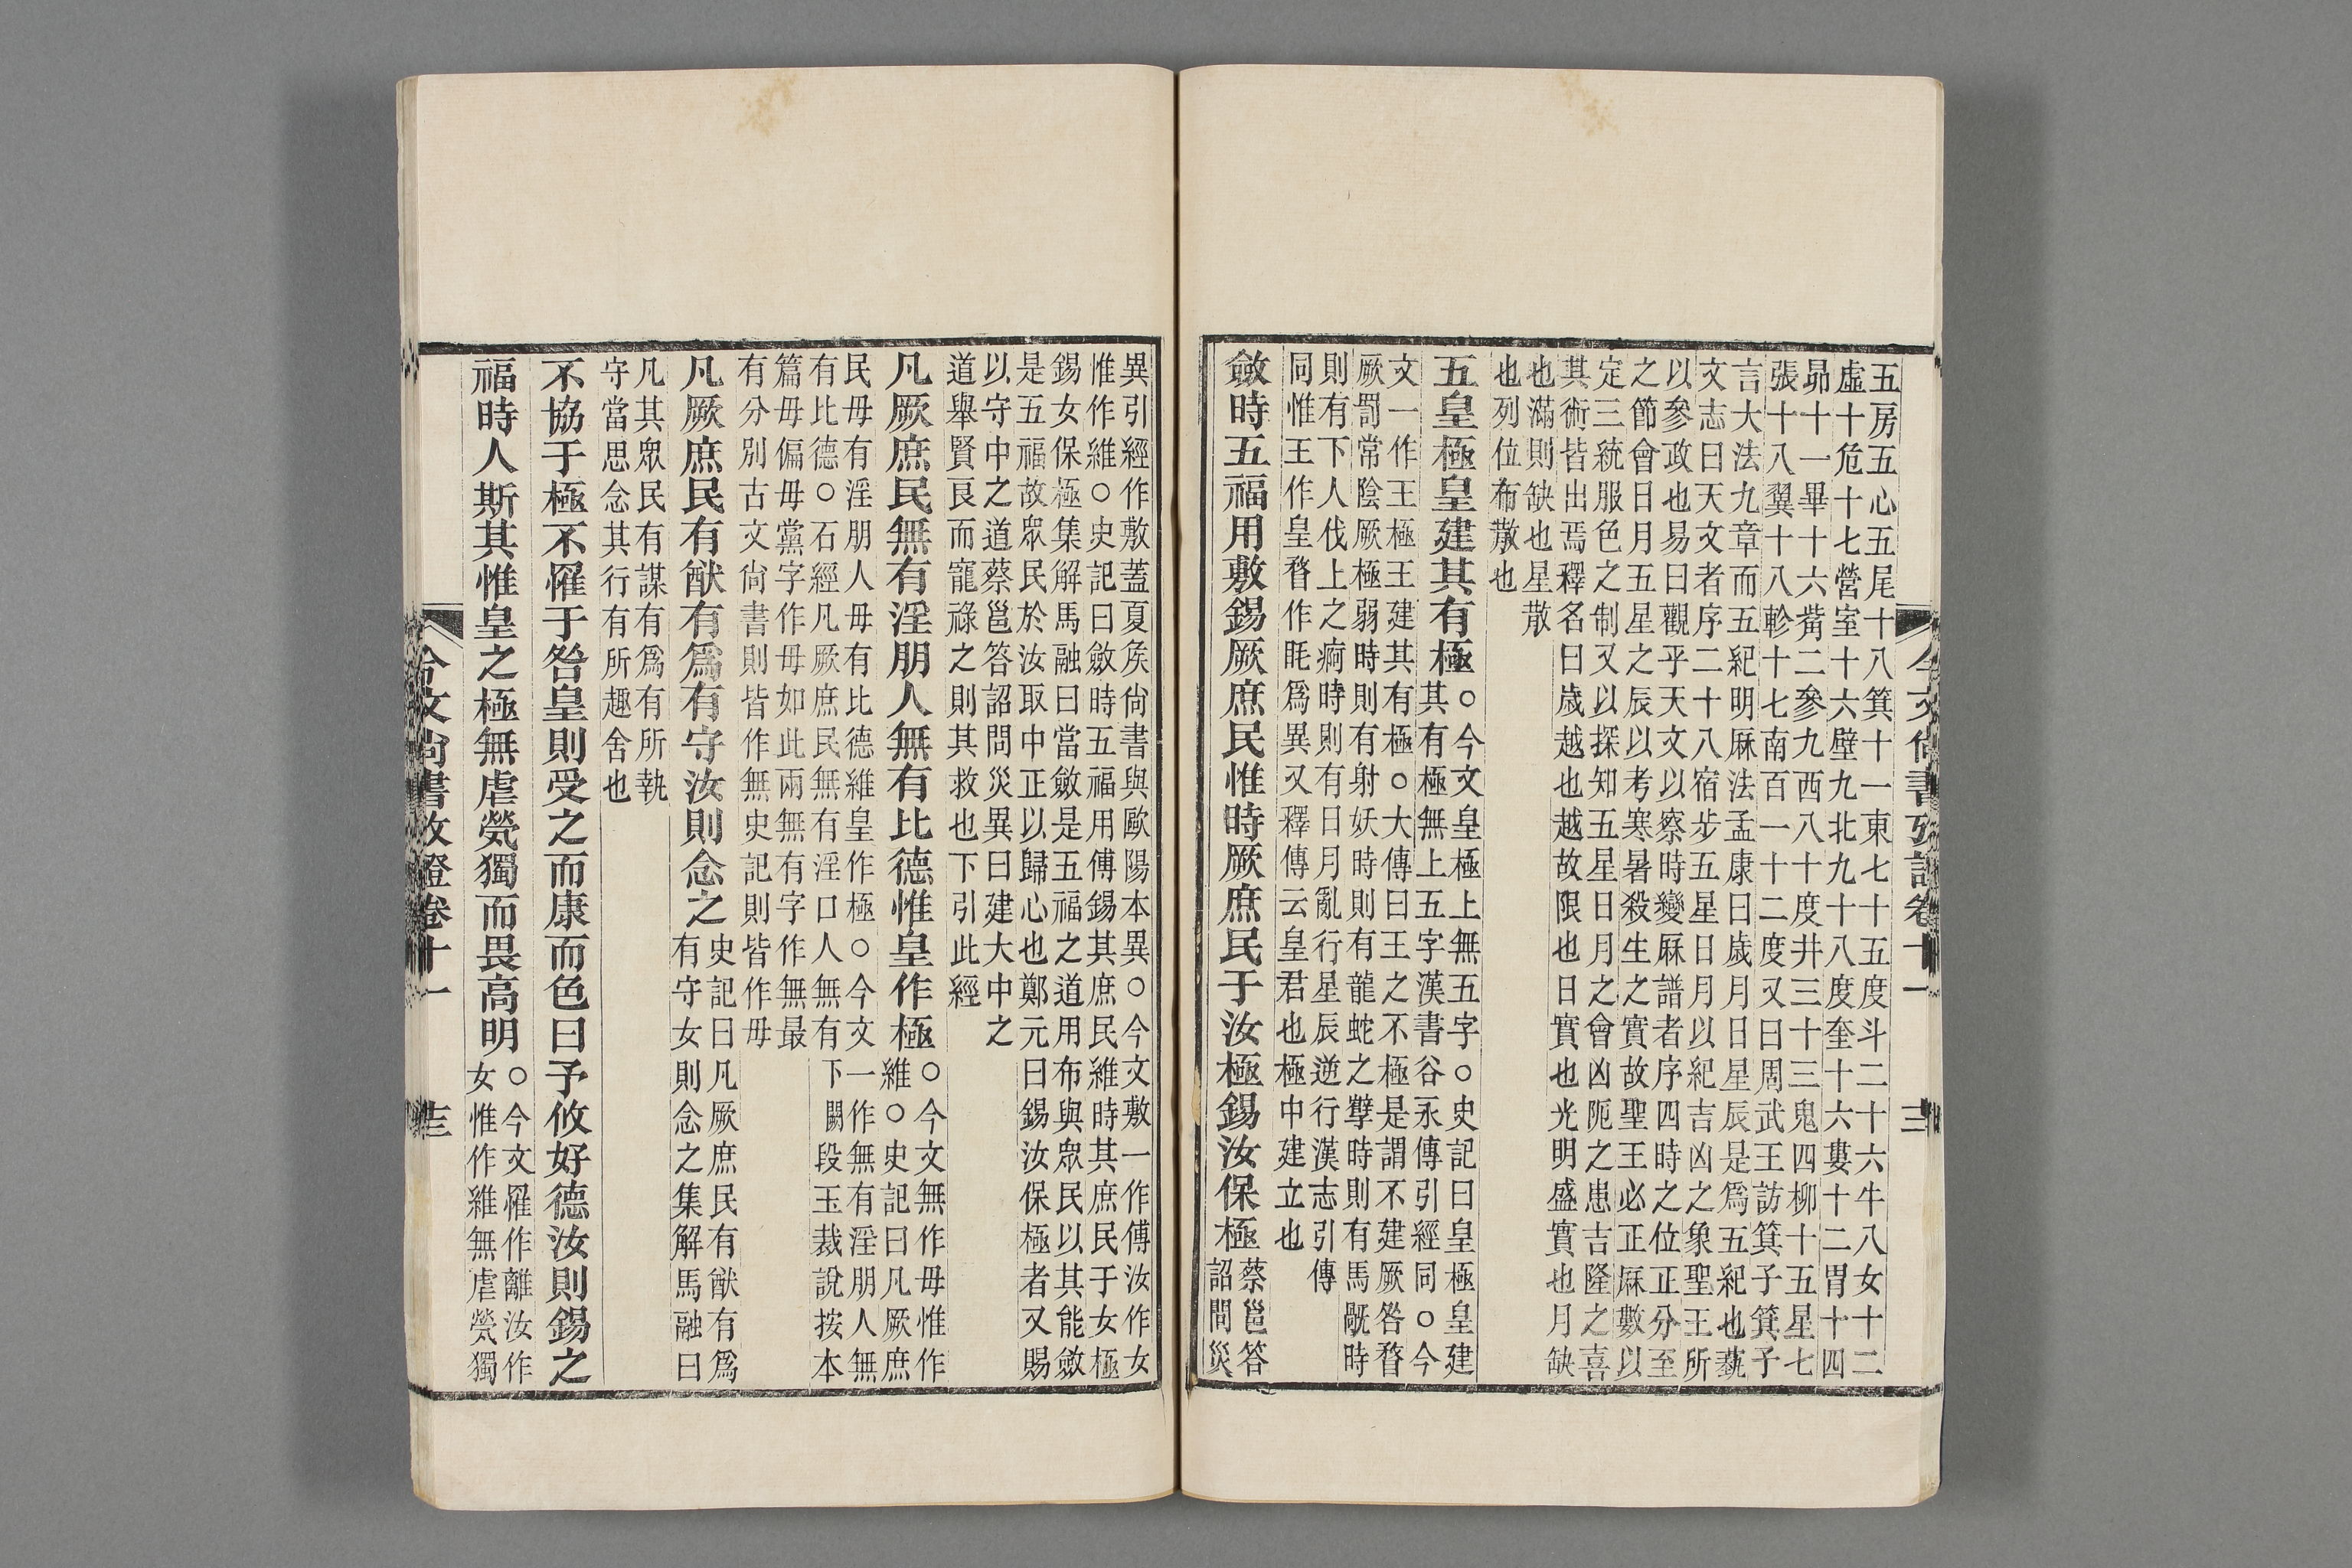 五房五心五尾十八箕十一東七十五度斗二十六牛八女十二
虛十危十七營室十六壁九北九十八度奎十六婁十二胃十四
昴十一畢十六觜二參九西八十度井三十三鬼四柳十五星七
張十八翼十八軫十七南百一十二度又曰周武王訪箕子箕子
言大法九章而五紀明厤法孟康曰歲月日星辰是爲五紀也藝
文志曰天文者序二十八宿步五星日月以紀吉凶之象聖王所
以參政也易曰觀乎天文以察時變厤譜者序四時之位正分至
之節會日月五星之辰以考寒暑殺生之實故聖王必正厤數以
定三統服色之制又以探知五星日月之會凶阨之患吉隆之喜
其術皆出焉釋名曰歲越也越故限也日實也光明盛實也月缺
也滿則缺也星散
也列位布散也
五皇極皇建其有極
○今文皇極上無五字○史記曰皇極皇建
其有極無上五字漢書谷永傳引經同○今
文一作王極王建其有極○大傳曰王之不極是謂不建厥咎瞀
厥罰常陰厥極弱時則有射妖時則有龍蛇之孽時則有馬旤時
則有下人伐上之痾時則有日月亂行星辰逆行漢志引傳
同惟王作皇瞀作眊爲異又釋傳云皇君也極中建立也
斂時五福用敷錫厥庶民惟時厥庶民于汝極錫汝保極
蔡邕答
詔問災
異引經作敷蓋夏矦尙書與歐陽本異○今文敷一作傅汝作女
惟作維○史記曰斂時五福用傅錫其庶民維時其庶民于女極
錫女保極集解馬融曰當斂是五福之道用布與眾民以其能斂
是五福故眾民於汝取中正以歸心也鄭元曰錫汝保極者又賜
以守中之道蔡邕答詔問災異曰建大中之
道舉賢良而寵祿之則其救也下引此經
凡厥庶民無有淫朋人無有比德惟皇作極
○今文無作毋惟作
維○史記曰凡厥庶
民毋有淫朋人毋有比德維皇作極○今文一作無有淫朋人無
有比德○石經凡厥庶民無有淫口人無有下闕段玉裁說按本
篇毋偏毋黨字作毋如此兩無有字作無最
有分別古文尙書則皆作無史記則皆作毋
凡厥庶民有猷有爲有守汝則念之
史記曰凡厥庶民有猷有爲
有守女則念之集解馬融曰
凡其眾民有謀有爲有所執
守當思念其行有所趣舍也
不協于極不罹于咎皇則受之而康而色曰予攸好德汝則錫之
福時人斯其惟皇之極無虐煢獨而畏高明
○今文罹作離汝作
女惟作維無虐煢獨
今文尙書攷證卷十一